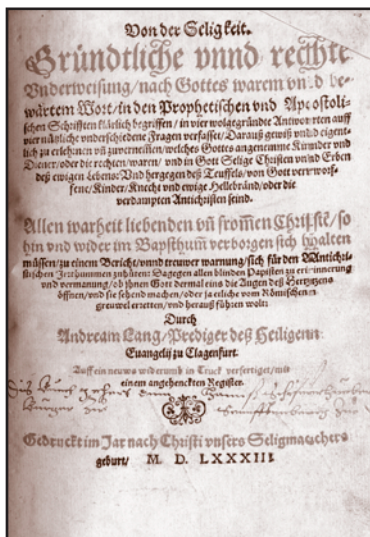 Von der Seligkeit.
Gründtliche vnnd rechte
Vnderweisung/nach Gottes warem vnd be-
wärtem Wort/in den Prophetischen vnd Apostoli-
schen Schrifften klärlich begriffen/in vier wolgegründte Antworten auff
vier nützliche vnderschiedne Fragen verfasset/Darauß gewiß vnd eigent-
lich zu erlehrnen vn̄ zuvernemen/welches Gottes angeneme Kinder vnd
Diener/oder die rechten/waren/vnd in Gott Selige Christen vnnd Erben
deß ewigen Lebens: Vnd hergegen deß Teuffels/von Gott verworf-
fene/Kinder/Knecht vnd ewige Hellebränd/oder die
verdampten Antichristen seind.
Allen warheit liebenden vn̄ fromen Christē/so
hin vnd wider im Bapsthum̄ verborgen sich halten
müssen/zu einem Bericht/vnnd treuwer warnung/sich für den Antichri-
stischen Irrthummen zuhüten: Dagegen allen blinden Papisten zu erinnerung
vnd vermanung/ob ihnen Gott dermal eins die Augen deß Hertzens
öffnen/vnd sie sehend machen/oder ja etliche vom Römischen
grewel erretten/vnd herauß führen wolt:
Durch
Andream Lang/Prediger deß Heiligenn
Euangelij zu Clagenfurt.
Auff ein neuws widerumb in Truck verfertiget/mit
einem angehenckten Register.
Gedruckt im Jar nach Christi vnsers Seligmachers
geburt/ M. D. LXXXIII.